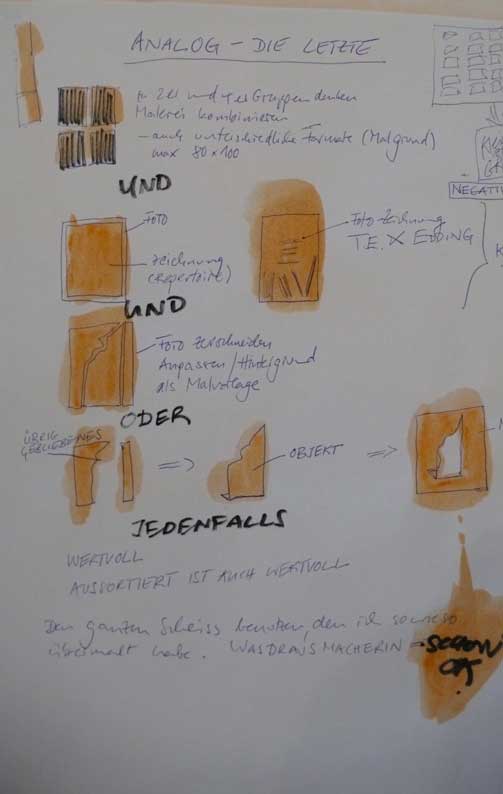 ANALOG – DIE LETZTE
in 2er und 4er Gruppen denken
Malerei kombinieren
– auch unterschiedliche Formate (Malgrund)
max 80 x 100
UND
FOTO
zeichnung
(repertoire)
Foto zeichnung
TE. X EDDING
UND
FOTO zerschneiden
Anpassen/Hintergrund
als Malvorlage
ODER
ÜBRIG
GEBLIEBENES
OBJEKT
JEDENFALLS
WERTVOLL
AUSSORTIERT IST AUCH WERTVOLL
Den ganzen Scheiss benutzen, den ich sowieso
übermalt habe. WASDRAUSMACHERIN
SCHON
OK
NEGATI